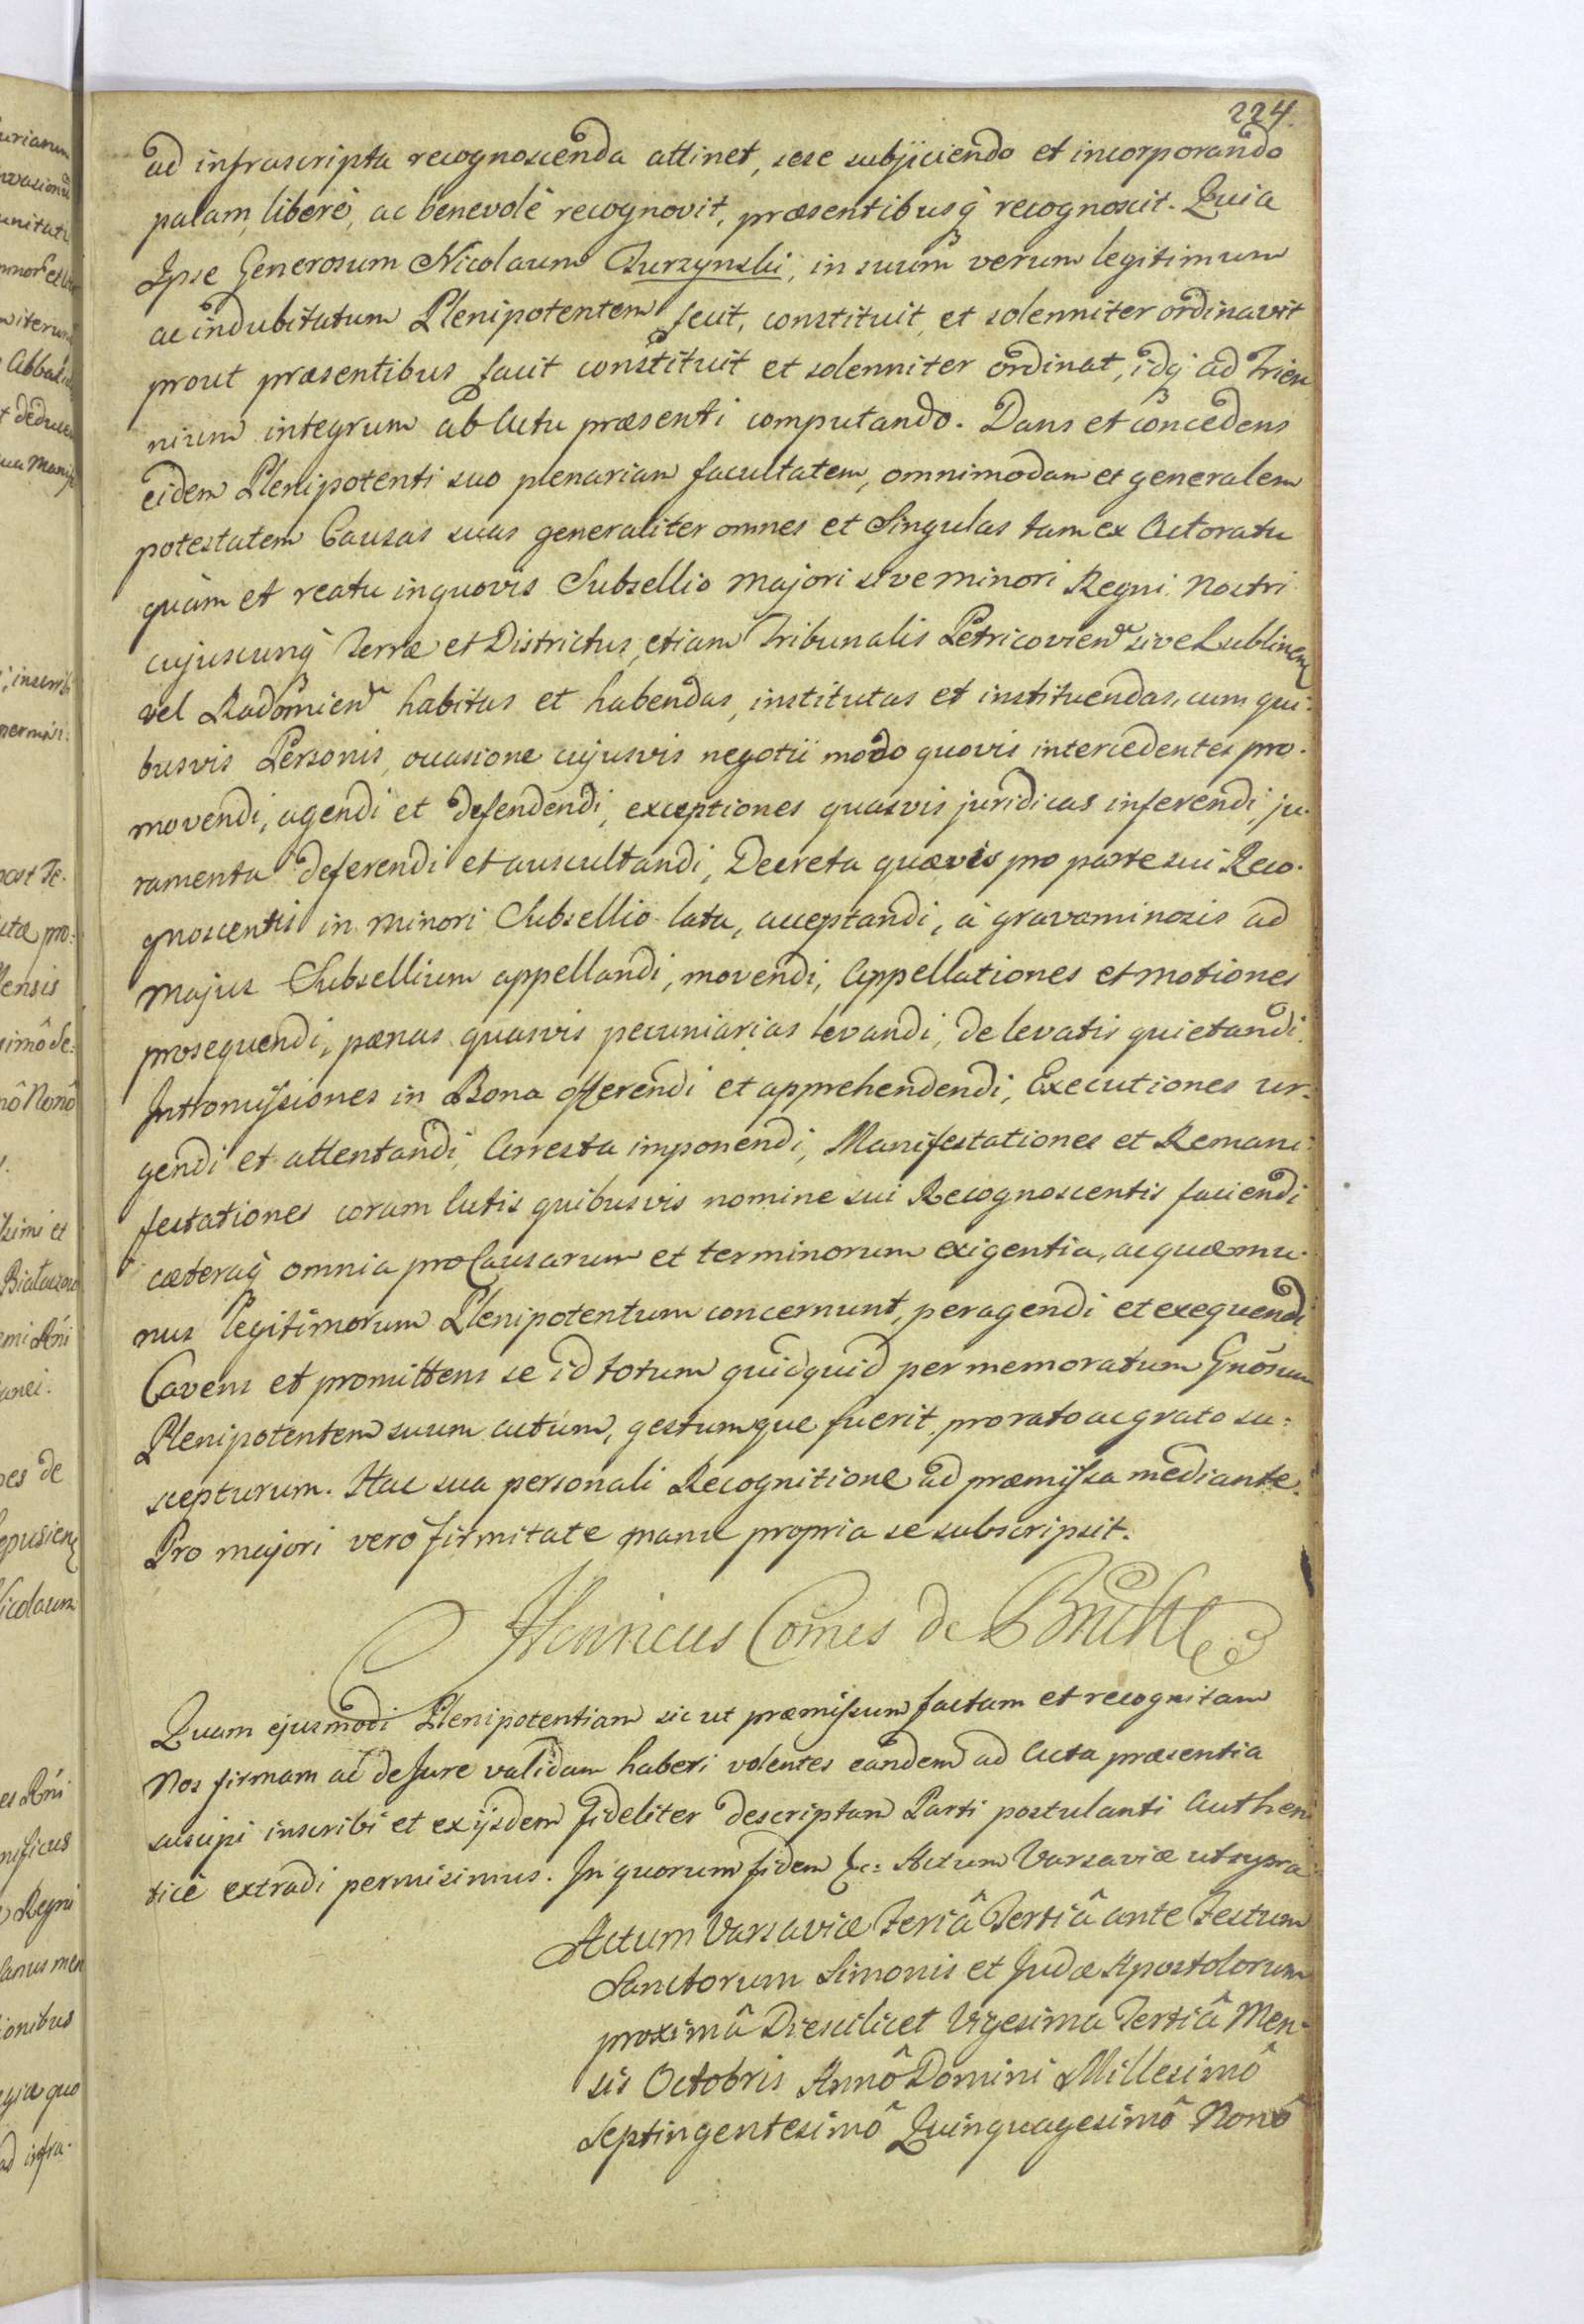 224.
ad infrascripta recognoscenda attinet, sese subjiciendo et incorporando
palam, liberè, ac benevolè recognovit, præsentibusq recognoscit. Quia
Ipse Generosum Nicolaum Turzynski, in suum verum legitimum
ac indubitatum Plenipotentem fecit, constituit, et solenniter ordinavit
prout præsentibus facit constituit et solenniter ordinat, idq ad Trien
nium integrum ab Actu præsenti computando. Dans et concedens
eidem Plenipotenti suo plenariam facultatem, omnimodam et generalem
potestatem Causas suas generaliter omnes et Singulas tam ex Actoratu
quàm et reatu in quovis Subsellio majori sive minori Regni Nostri
cujuscunq Terræ et Districtus, etiam Tribunalis Petricovien sive Lublinen
vel Radomien habitas et habendas, institutas et instituendas, cum qui-
busvis Personis, occasione cujusvis negotii modo quovis intercedentes pro-
movendi, agendi et defendendi, exceptiones quasvis juridicas inferendi, ju-
ramenta deferendi et auscultandi, Decreta quævis pro parte sui Reco-
gnoscentis in minori Subsellio lata, acceptandi, à gravaminosis ad
majus Subsellium appellandi, movendi, Appellationes et motiones
prosequendi, pænas quasvis pecuniarias levandi, de levatis quietandi.
Intromissiones in Bona offerendi et apprehendendi, Executiones ur-
gendi et attentandi, Arresta imponendi, Manifestationes et Remani-
festationes coram Actis quibusvis nomine sui Recognoscentis faciendi
cæteraq omnia pro Causarum et terminorum exigentia, ac quæ mu-
nus legitimorum Plenipotentum concernunt, peragendi et exequendi
Cavens et promittens se id totum quidquid per memoratum Gnõsum
Plenipotentem suum actum, gestumque fuerit, pro rato ac grato su-
scepturum. Hac sua personali Recognitione ad præmissa mediante.
Pro majori vero firmitate manu propria se subscripsit.
Henricus Comes de Bruhl
Quam ejusmodi Plenipotentiam sic ut præmissum factam et recognitam
Nos firmam ac de Jure validam haberi volentes eandem ad Acta præsentia
suscipi inscribi et ex ijsdem fideliter descriptam Parti postulanti Authen
ticè extradi permisimus. In quorum fidem &c: Actum Varsaviæ ut supra
Actum Varsaviæ Feriâ Tertiâ ante Festum
Sanctorum Simonis et Judæ Apostolorum
proximâ Die scilicet Vigesima Tertiâ Men-
sis Octobris Annô Domini Millesimô
Septingentesimô Quinquagesimô Nonô